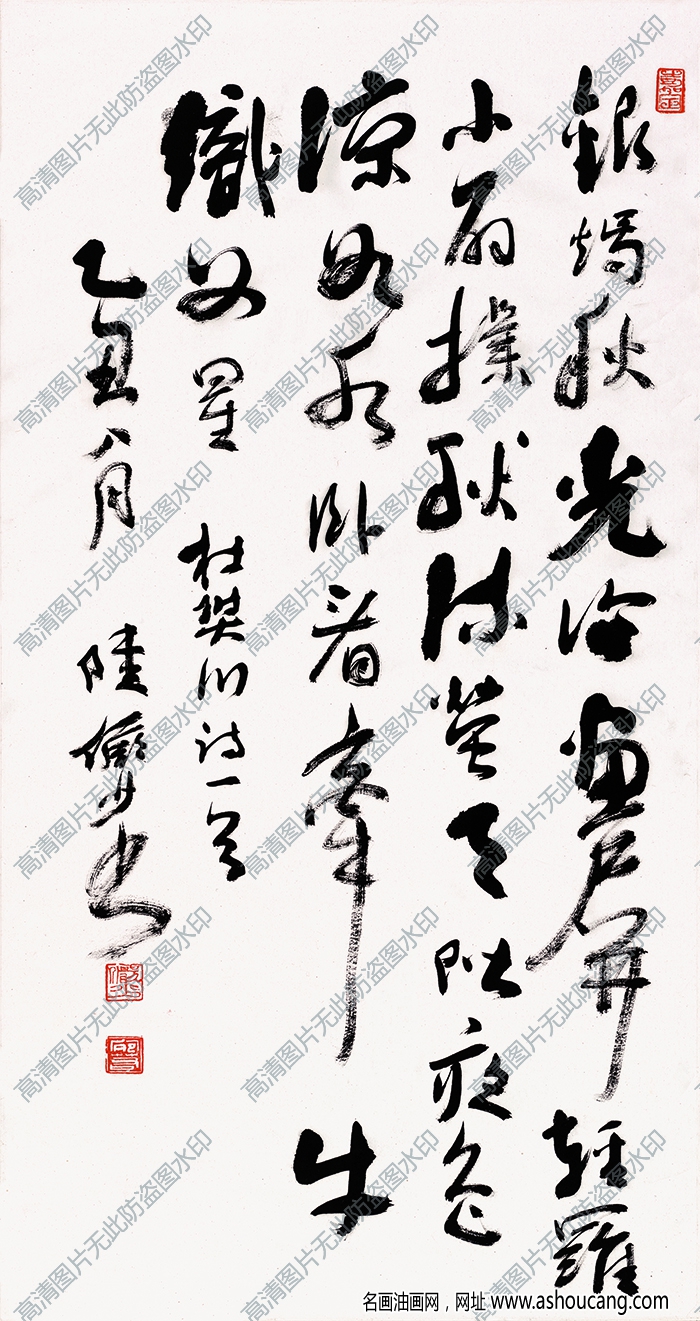 銀燭秋光冷畫屏輕羅
小扇撲流螢天階夜色
涼如水卧看牽牛
織女星 杜樊川詩一首
乙丑八月 陸儼少書
高清图片无此防盗图水印
名画油画网，网址 www.ashoucang.com